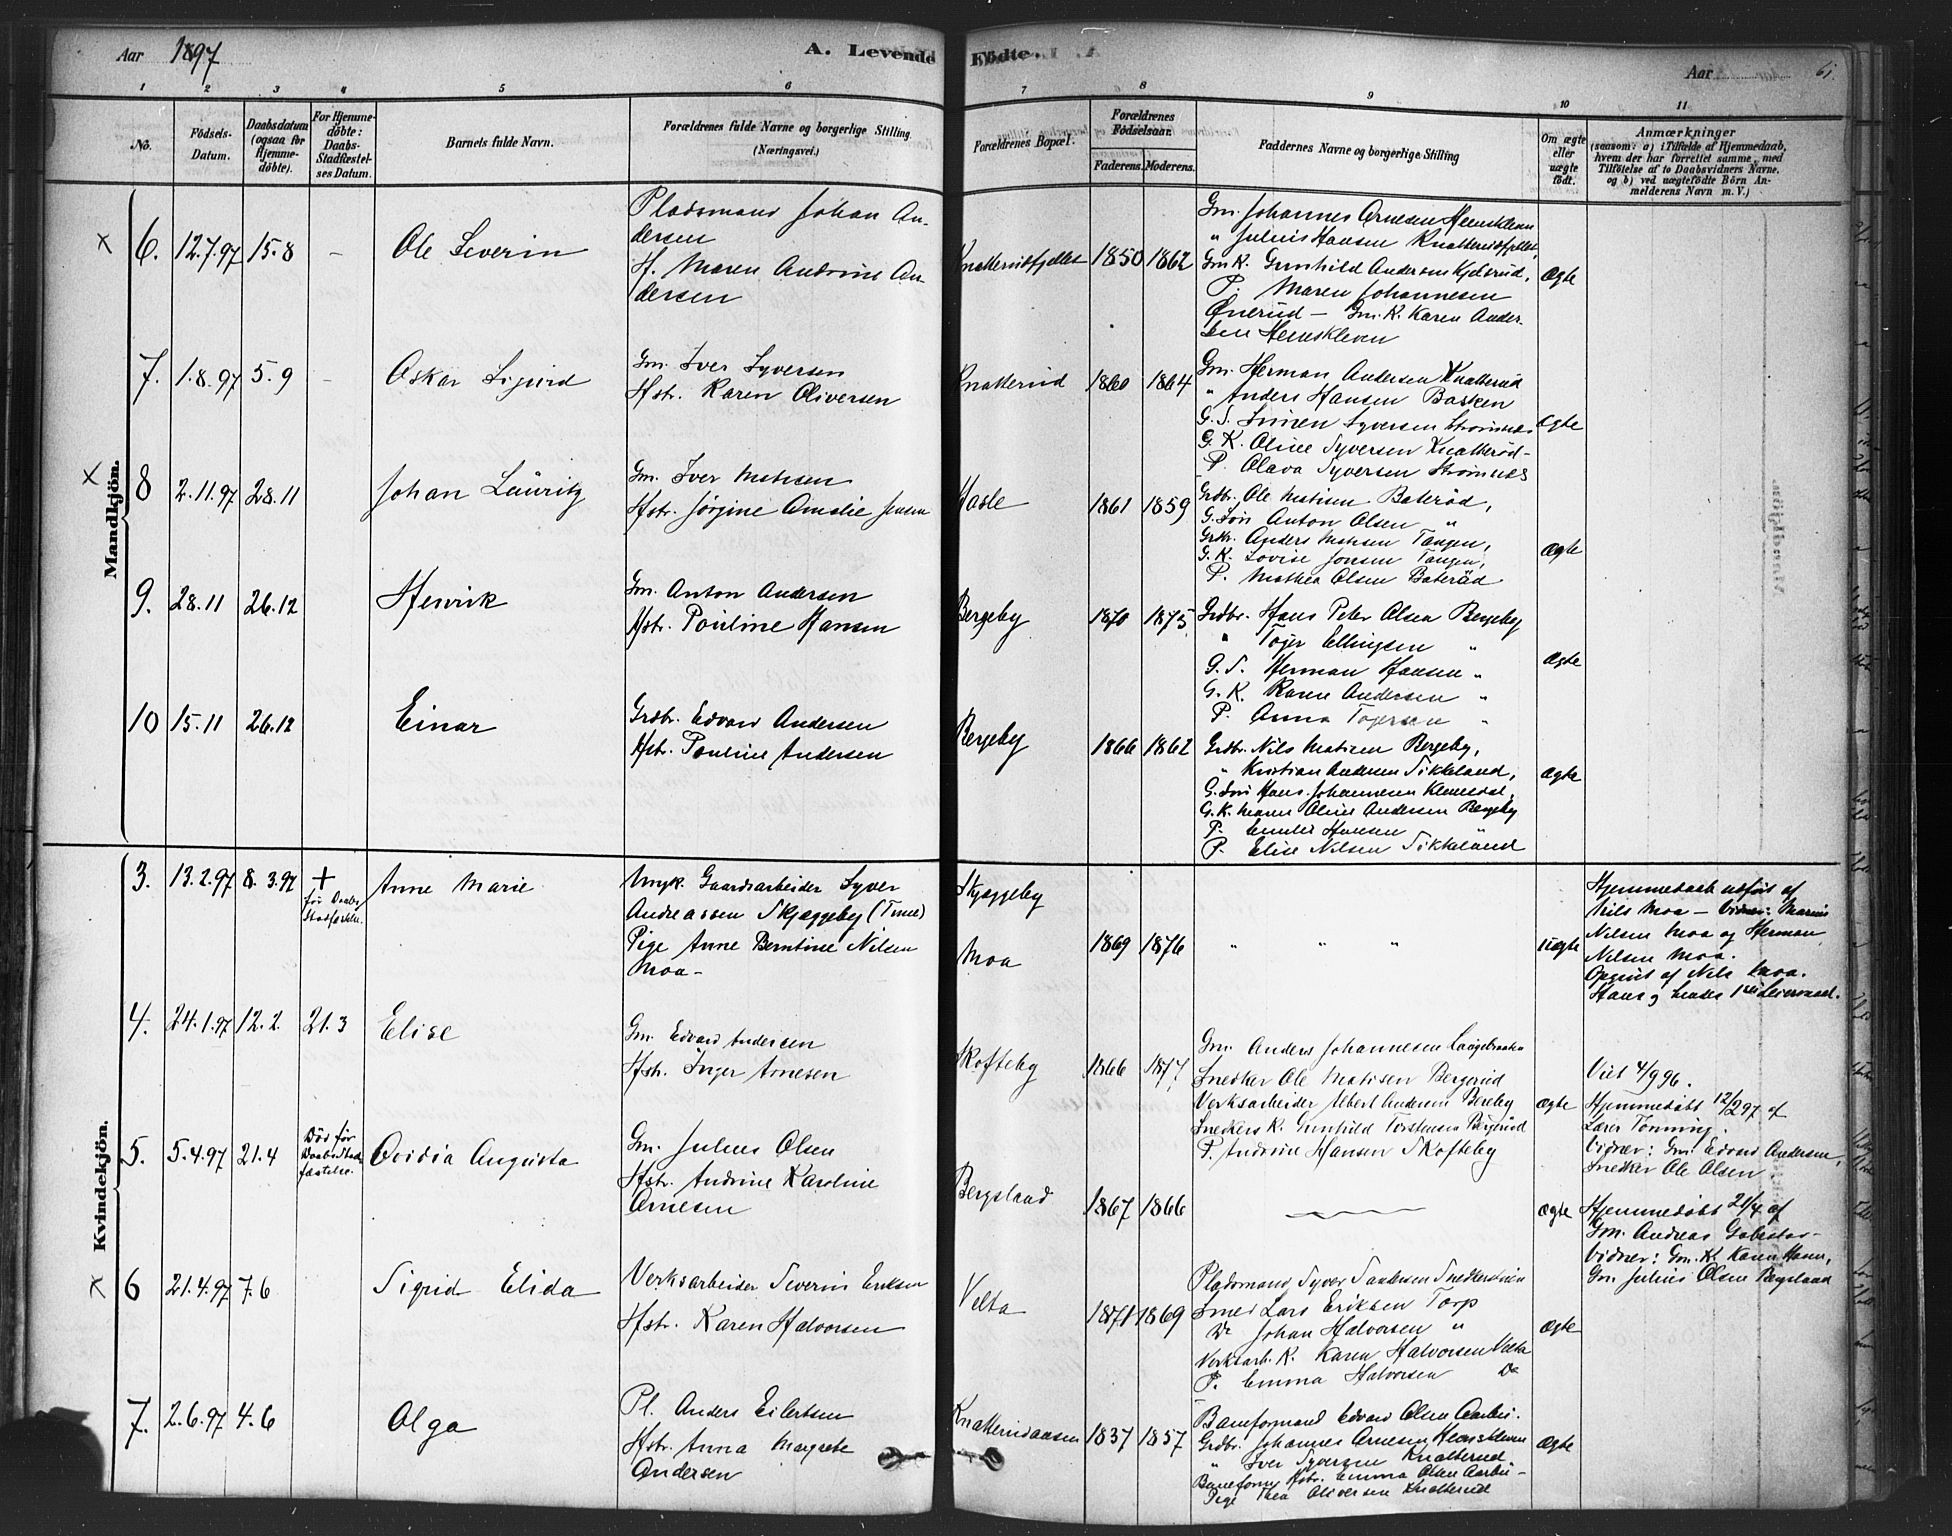 Aar 1897
A. Levende Födte.
Aar 61.
1 2 3 4 5 6 7 8 9 10 11
No.
Födsels-Datum.
Daabsdatum (ogsaa for Hjemme-döbte).
For Hjemme-döbte: Daabs-Stadfæstel-ses Datum.
Barnets fulde Navn.
Forældrenes fulde Navne og borgerlige Stilling
(Næringsvei.)
Forældrenes Bopæl.
Forældrenes Födselsaar.
Faderens. Moderens.
Faddernes Navne og borgerlige Stilling
Om ægte eller uægte födt.
Anmærkninger
(saasom: a) i Tilfælde af Hjemmedaab,
hvem der har forrettet samme, med
Tilföielse af to Daabsvidners Navne,
og b) ved uægtefödte Börn An-
melderens Navn m. V.)
Mandkjön.
6. 12.7.97 15.8 - Ole Severin
Pladsmand Johan An-
dersen
H. Maren Andrine An-
dersen
Knatterudfjellet 1850 1862
Gm. Johannes Arnesen Heenskleven
" Julius Hansen Knatterudfjellet,
Gm.K. Gunhild Andersen Kjelsrud,
P. Maren Johannesen
Ønerud - Gm.K. Karen Ander-
sen Heenskleven
Ægte
7. 1.8.97 5.9 - Oskar Sigurd
Gm. Iver Syversen
Hstr. Karen Oliversen
Knatterud 1860 1864
Gm. Herman Andersen Knatterud
" Anders Hansen Basken
G.S. Simen Syversen Strømnes
G.K. Oline Syversen Knatterød-
P. Olava Syversen Strømnes
Ægte
8 2.11.97 28.11 Johan Lauritz
Gm. Iver Matisen
Hstr. Jørgine Amalie Jensen
Hasle 1861 1859
Grdbr. Ole Matisen Baterød,
G.Søn Anton Olsen "
Grbr. Anders Matisen Tangen,
G.K. Lovise Jonsen Tangen,
P. Mathea Olsen Baterød
Ægte
9. 28.11 26.12 Henrik
Gm. Anton Andersen
Hstr. Pouline Hansen
Bergeby 1870 1875
Grdbr. Hans Peter Olsen Bergeby
" Tøger Ellingsen "
G.S. Herman Hansen "
G.K. Karen Andersen "
P. Anna Tøgersen "
Ægte
10 15.11 26.12 Einar
Grdbr. Edvard Andersen
Hstr. Pouline Andersen
Bergeby 1866 1862
Grdbr. Nils Matisen Bergeby,
" Kristian Andersen Sikkeland,
G.Søn Hans Johannesen
G.K. Maren Oline Andersen Bergeby
P. Emilie Hansen
P. Elise Nilsen Sikkeland
Ægte
Kvindekjön.
3. 13.2.97 8.3.97 + før Daabs Stadfæstelse. Anne Marie
Ungk. Gaardsarbeider Syver
Andreassen Skjæggeby (Tune)
Pige Anne Berntine Nilsen
Moa-
Skjæggeby
Moa 1869 1876
" " "
Uægte
Hjemmedaab udført af
Nils Moa - Vidner: Marius
Nilsen Moa og Herman
Nilsen Moa.
Opgivet af Nils Moa.
Hans og hendes 1ste Leiermaal.
4. 24.1.97 12.2. 21.3 Elise
Gm. Edvard Andersen
Hstr. Inger Arnesen
Skofteby 1866 1877
Gm. Anders Johannesen Langebraaten
Snedker Ole Matisen Bergerud
Verksarbeider Albert Andersen Bergeby
Snedkers K. Gunhild Torstensen Bergerud
P. Andrine Hansen Skofteby
Ægte
Viet 4/9 96.
Hjemmedøbt 12/2 97 af
Lærer Tønning.
Vidner: Gm. Edvard Andersen,
Snedker Ole Olsen
5. 5.4.97 21.4 Død før Daabsstad-fæstelse. Ovidia Augusta
Gm. Julius Olsen
Hstr. Andrine Karoline
Arnesen
Bergsland 1867 1866
Ægte
Hjemmedøbt 21/4 af
Gm. Andreas
Vidner: Gm. K. Karen Hans,
Gm. Julius Olsen Bergsland
6 21.4.97 7.6 Sigrid Elida
Verksarbeider Severin Eriksen
Hstr. Karen Halvorsen
Velta 1871 1869
Pladsmand Syver
Smed Lars Eriksen Torp
Do Johan Halvorsen "
Verksarb. K. Karen Halvorsen Velta
P. Emma Halvorsen Do
Ægte
7. 2.6.97 4.6 Olga
Pl. Anders Eilertsen
Hstr. Anna Margrete
Andersen
Knatterudaasen 1837 1857
Baneformand Edvard Olsen Aarbu.
Grdbr. Johannes Arnesen Heenskleven
" Iver Syversen Knatterud
Baneform. Hstr. Emma Olsen Aarbu-
Pige Thea Oliversen Knatterud
Ægte